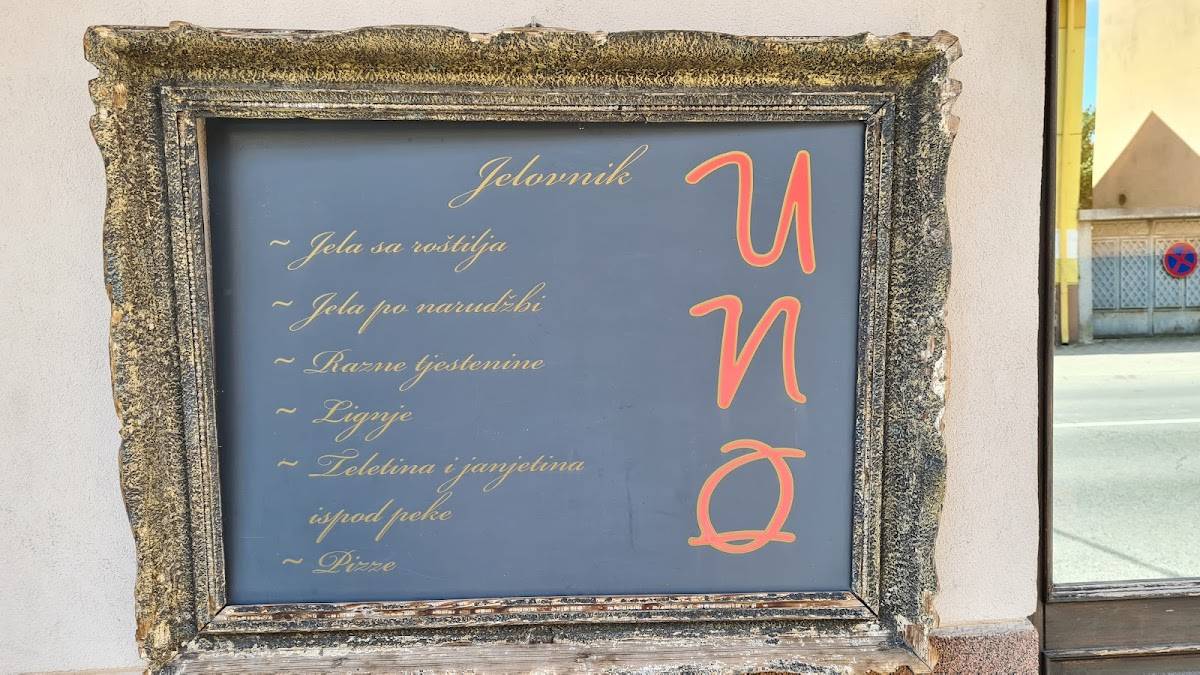 Jelovnik
~ Jela sa roštilja
~ Jela po narudžbi
~ Razne tjestenine
~ Lignje
~ Teletina i janjetina
ispod peke
~ Pizze
UNO